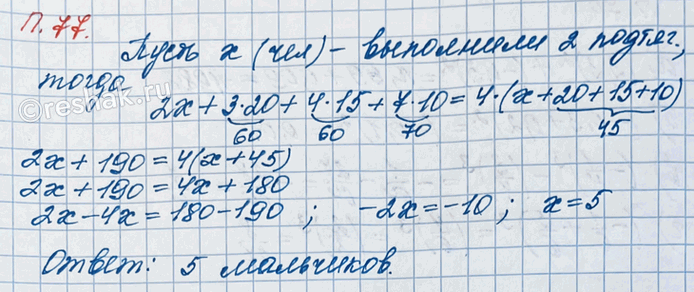 П. 77.
Пусть x (чел) - выполнили 2 подтяг.,
тогда
2x + 3·20 + 4·15 + 7·10 = 4·(x+20+15+10)
60 60 70 45
2x + 190 = 4(x+45)
2x + 190 = 4x + 180
2x - 4x = 180 - 190 ; -2x = -10 ; x = 5
Ответ: 5 мальчиков.
©reshak.ru